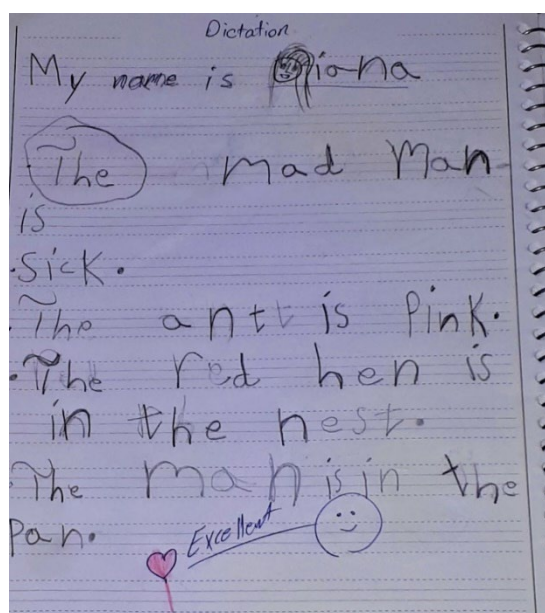 Dictation
My name is Giana
The mad Man
is
Sick.
The ant is Pink.
The red hen is
in the nest.
The man is in the
Pan.
Excellent